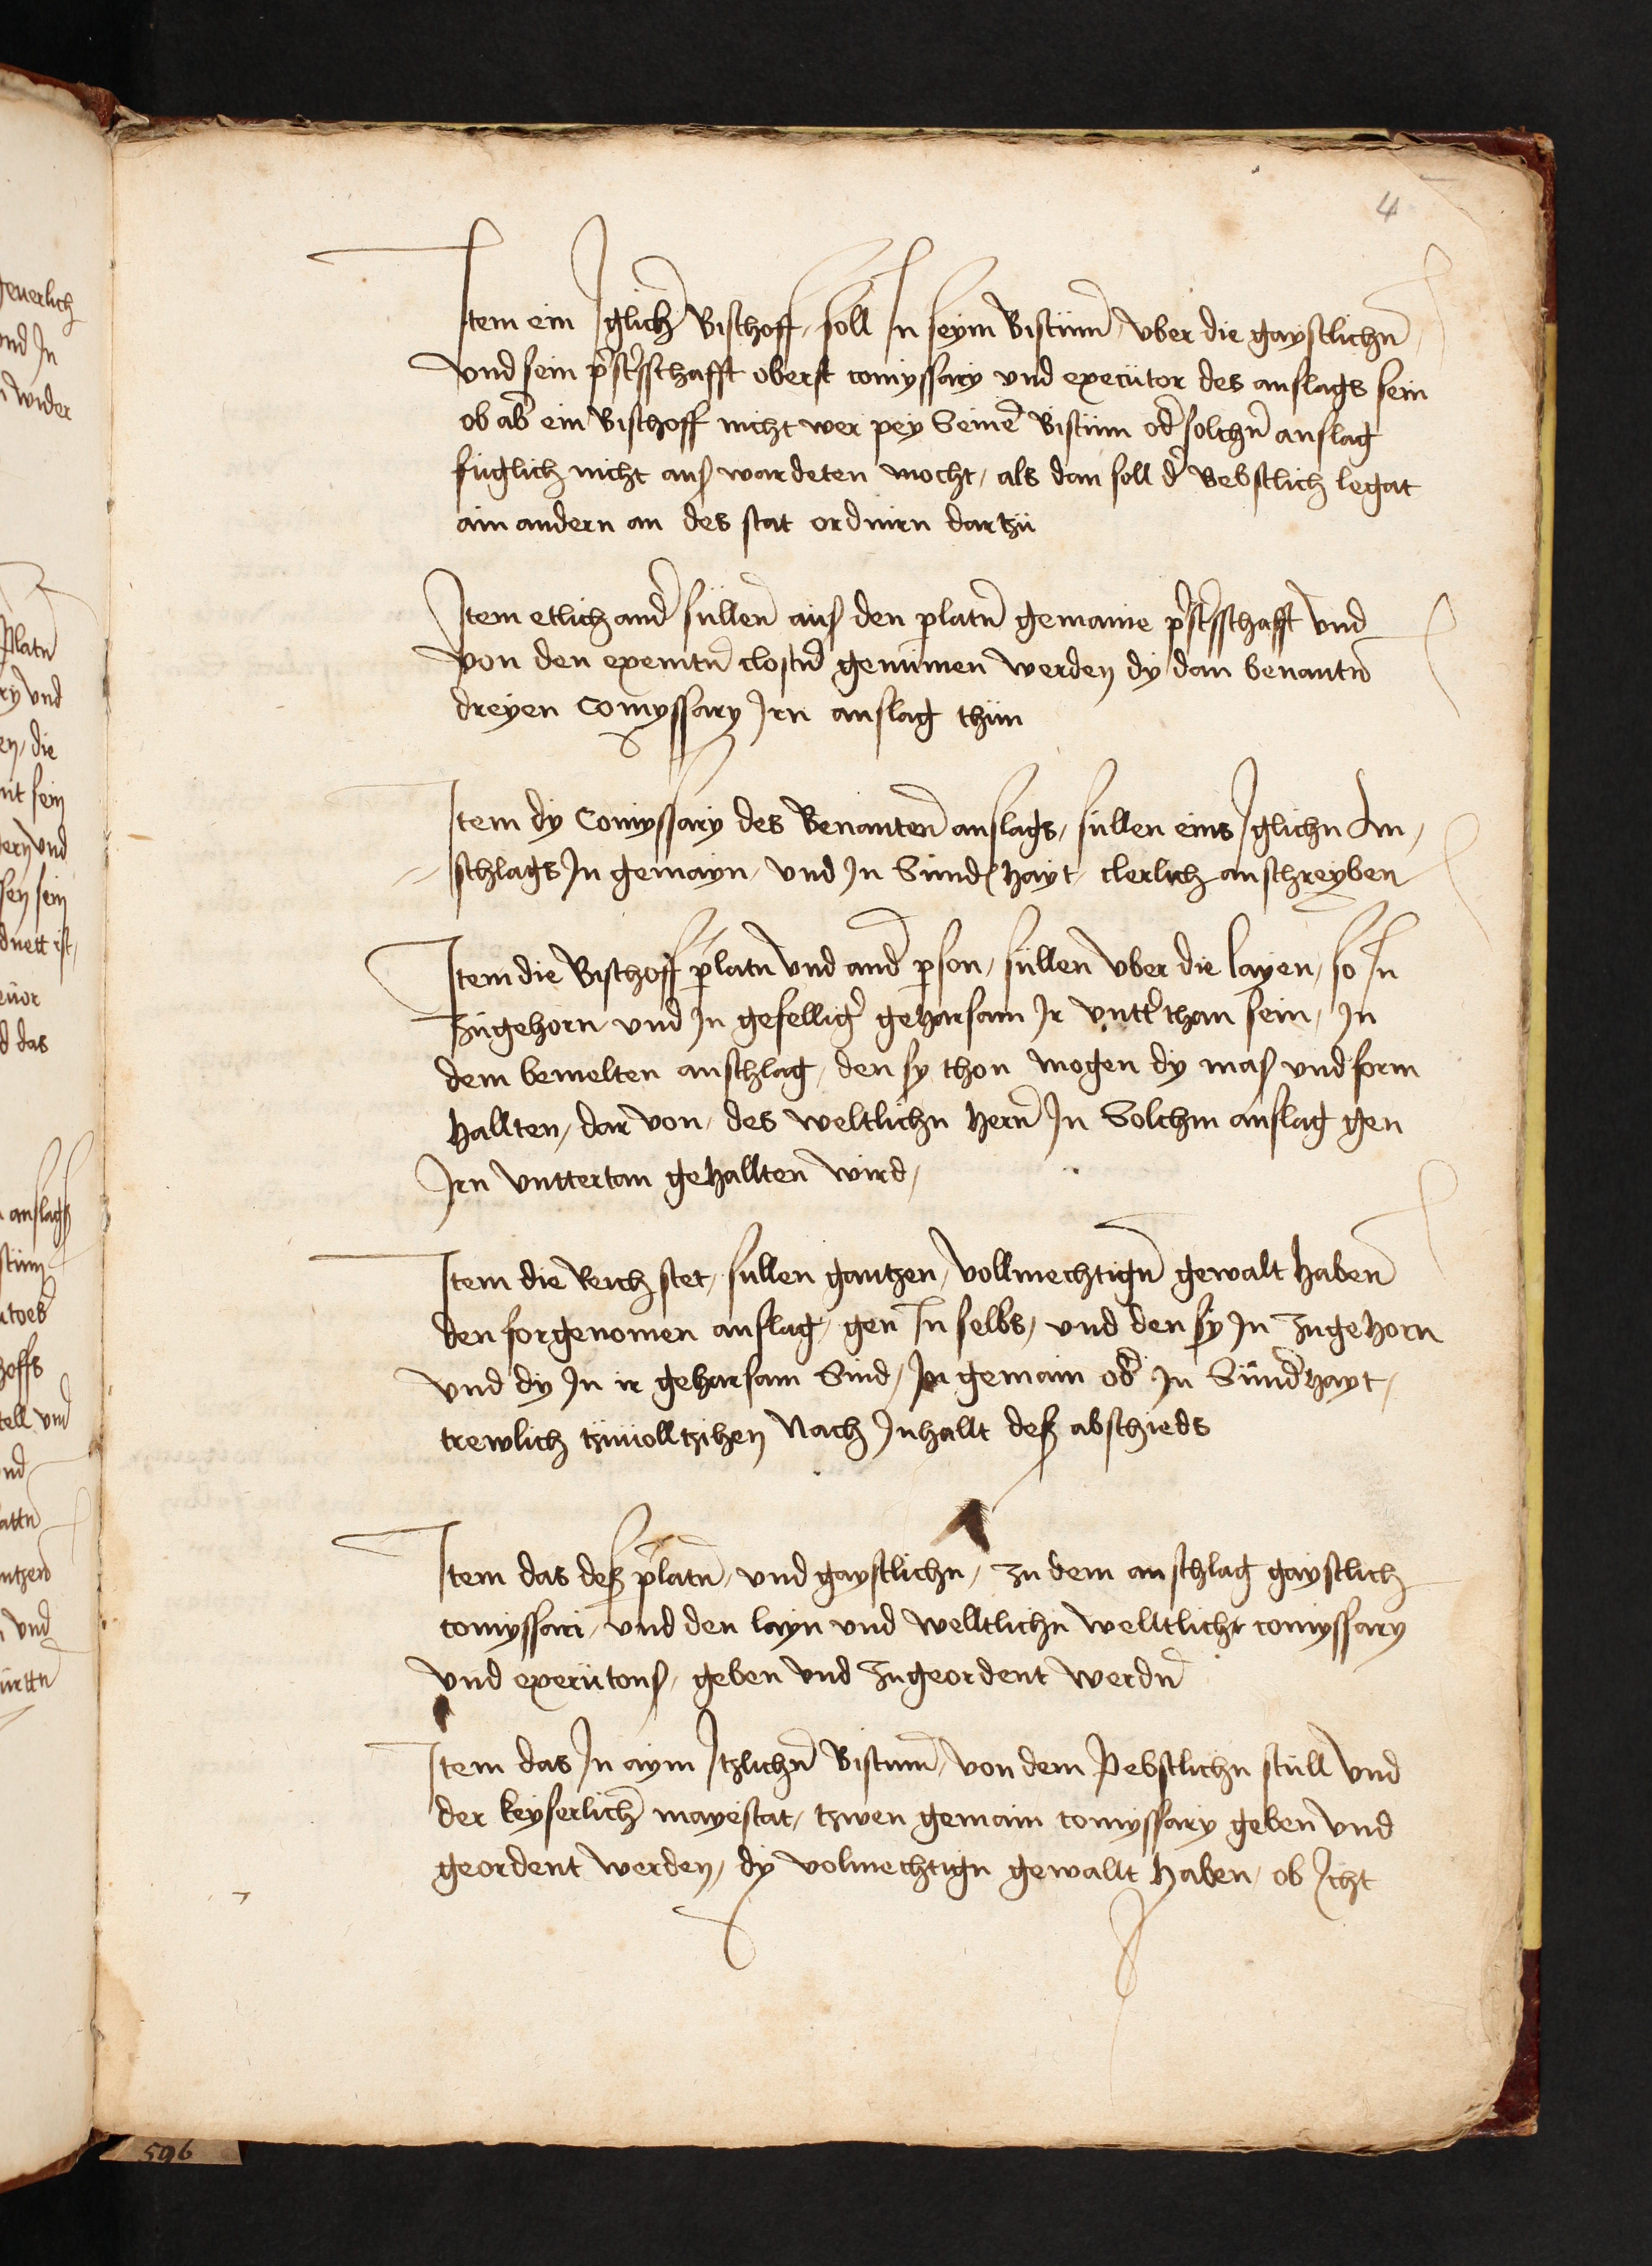 4
Item ein Iglicher Bischoff, soll In seym Bistumb, vber die gaystlichn
vnd sein presterschafft oberst comyssary vnd executor des anslags sein
ob aber ein Bischoff nicht wer pey Seinem Bistum oder solchn anslag
fuglich nicht aus wardeten mocht, als dan soll der Bebstlich legat
ain andern an des stat ordnirn dartzu
Item etlich ander sullen aus den platn gemaine presterschafft vnd
von den exemtn clostern genummen werden dy dan benantn
dreyen Comyssary Irn anslag thun
Item dy Comyssary des Benanten anslags, sullen eins Iglichn An,
schlags In gemayn, vnd In Sunderhayt, clerlich anschreyben
Item die Bischoff prelatn vnd ander person, sullen vber die layen, so In
zugehorn, vnd In gefelliger geharsam Ir vntterthan sein, In
dem bemelten anschlag, den sy thon mogen dy mas vnd form
hallten, dar von, des weltlichn hern In Solchm anslag gen
Irn vnttertan gehallten wird,
Item die Reich stet, sullen gantzen, vollmechtign gewalt haben
den forgenomen anslag, gen In selbs, vnd den sy In zugehorn
vnd dy In ir geharsam Sind, In gemain oder In Sunderhayt,
trewlich tzuuolltzihen Nach Inhallt deß abschieds
Item das deß prelatn, vnd gaystlichn, zu dem anschlag gaystlich
comyssari, vnd den layn vnd welltlichn welltlichr comyssary
vnd executors, geben vnd zugeordent werdn
Item das In aym Itzlichn Bistumb, von dem Pebstlichn stull vnd
der keyserlicher mayestat, tzwen gemain comyssary geben vnd
geordent werden, dy volmechtign gewallt haben, ob Icht
596